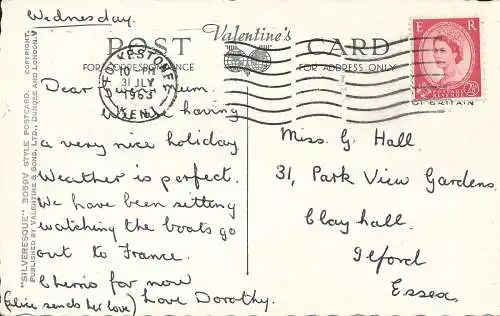 Wednesday.
Valentine's
POST CARD
FOR CORRESPONDENCE
FOR ADDRESS ONLY
FOLKESTONE
10-PM
31 JLY
1963
KENT
E R
2½D
OF BRITAIN
Dear
having
a very nice holiday
Weather is perfect.
We have been sitting
watching the boats go
out to France.
Cheerio for now
(Alice sends her love) Love Dorothy.
Miss. G. Hall
31, Park View Gardens
Clayhall.
Ilford
Essex.
"SILVERESQUE" 3050V STYLE POSTCARD. COPYRIGHT.
PUBLISHED BY VALENTINE & SONS, LTD., DUNDEE AND LONDON.